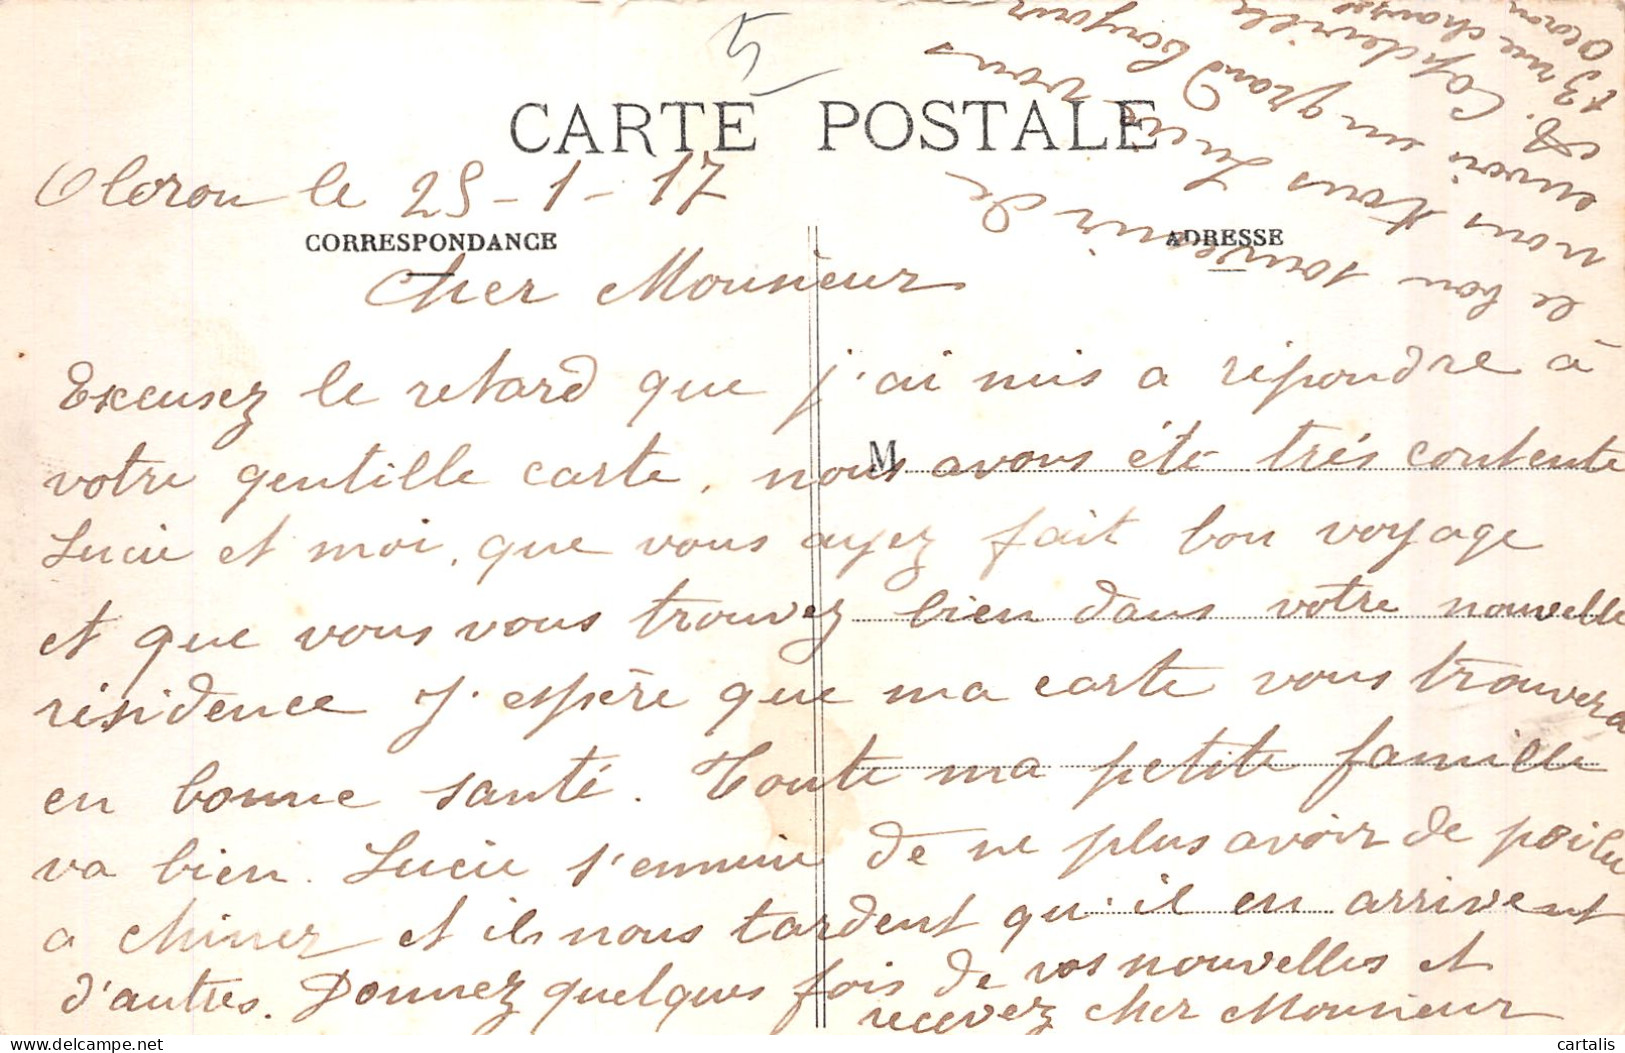 5
CARTE POSTALE
Oloron le 25-1-17
CORRESPONDANCE
ADRESSE
Cher Monsieur
Excusez le retard que j'ai mis a répondre à
M
votre gentille carte, nous avons été trés contente
Lucie et moi, que vous ayez fait bon voyage
et que vous vous trouvez bien dans votre nouvelle
résidence J'espère que ma carte vous trouvera
en bonne santé. Toute ma petite famille
va bien. Lucie s'ennuie de ne plus avoir de poilu
a chiner et ils nous tardent qu'il en arrivent
d'autres. Donnez quelques fois de vos nouvelles et
recevez cher Monsieur
le bon souvenir de
nous tous Lucie vous
envoi un grand bonjour
A. Capdeville
13 rue
Oloron
cartalis